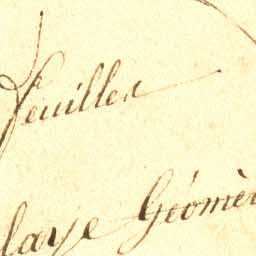 feuilles
laye Géomè